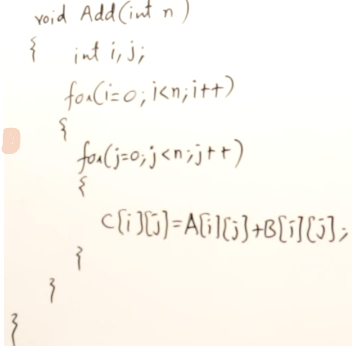 void Add(int n)
{ int i,j;
for(i=0;i<n;i++)
{
for(j=0;j<n;j++)
{
C[i][j]=A[i][j]+B[i][j];
}
}
}